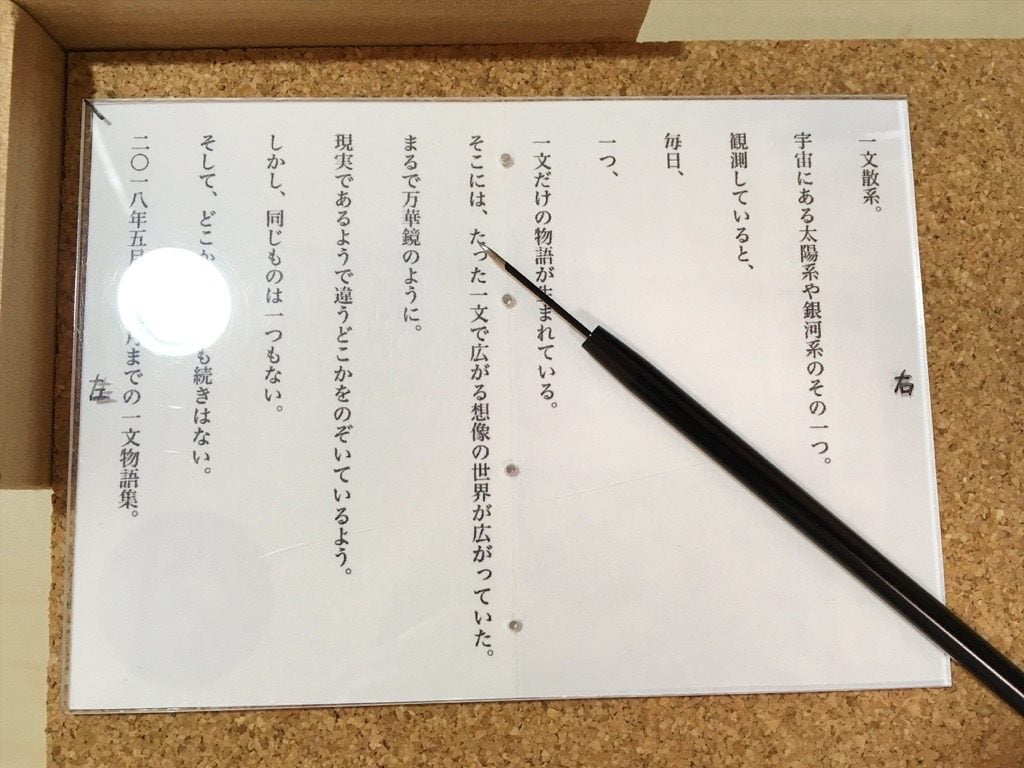 一文散系。
宇宙にある太陽系や銀河系のその一つ。
観測していると、
毎日、
一つ、
一文だけの物語が生まれている。
そこには、たった一文で広がる想像の世界が広がっていた。
まるで万華鏡のように。
現実であるようで違うどこかをのぞいているよう。
しかし、同じものは一つもない。
そして、どこか も続きはない。
二〇一八年五月 月までの一文物語集。
右
左